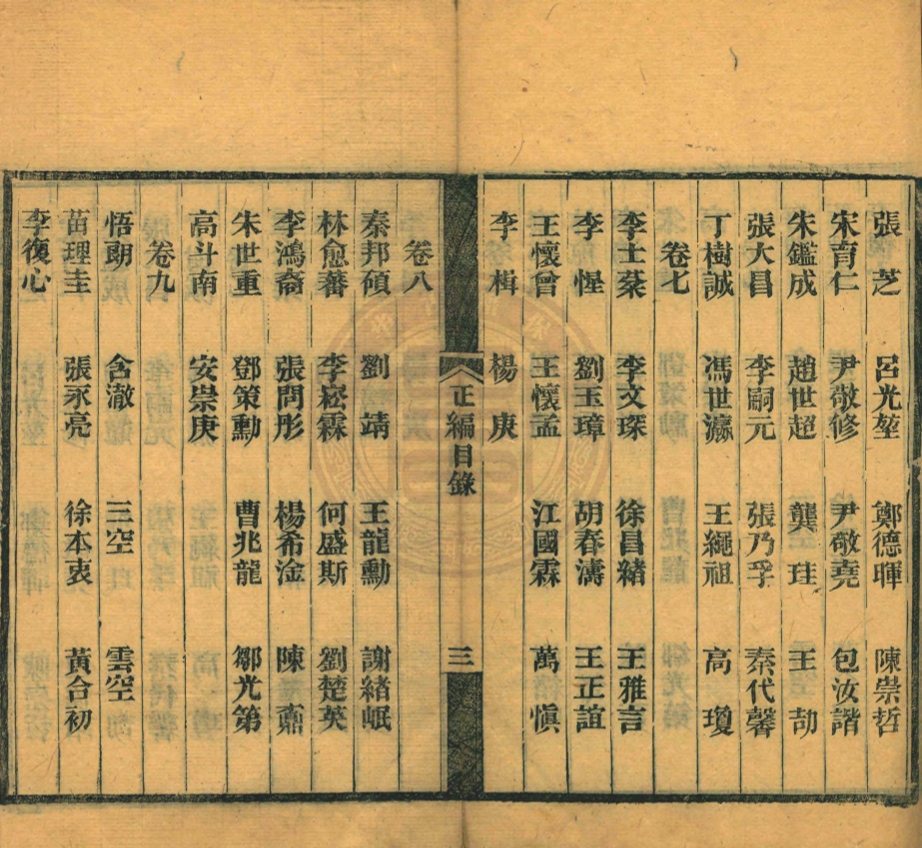 張芝 呂光堃 鄭德暉 陳崇哲
宋育仁 尹敬修 尹敬堯 包汝諧
朱鑑成 趙世超 龔珪 王劼
張大昌 李嗣元 張乃孚 秦代馨
丁樹誠 馮世瀛 王繩祖 高瓊
卷七
李士棻 李文琛 徐昌緒 王雅言
李惺 劉玉璋 胡春濤 王正誼
王懷曾 王懷孟 江國霖 萬愼
李楫 楊庚
正編目錄 三
卷八
秦邦碩 劉靖 王龍勳 謝緒岷
林愈蕃 李崧霖 何盛斯 劉楚英
李鴻裔 張問彤 楊希淦 陳鼒
朱世重 鄧策勳 曹兆龍 鄒光第
高斗南 安崇庚
卷九
悟朗 含澈 三空 雲空
苗理圭 張永亮 徐本衷 黃合初
李復心